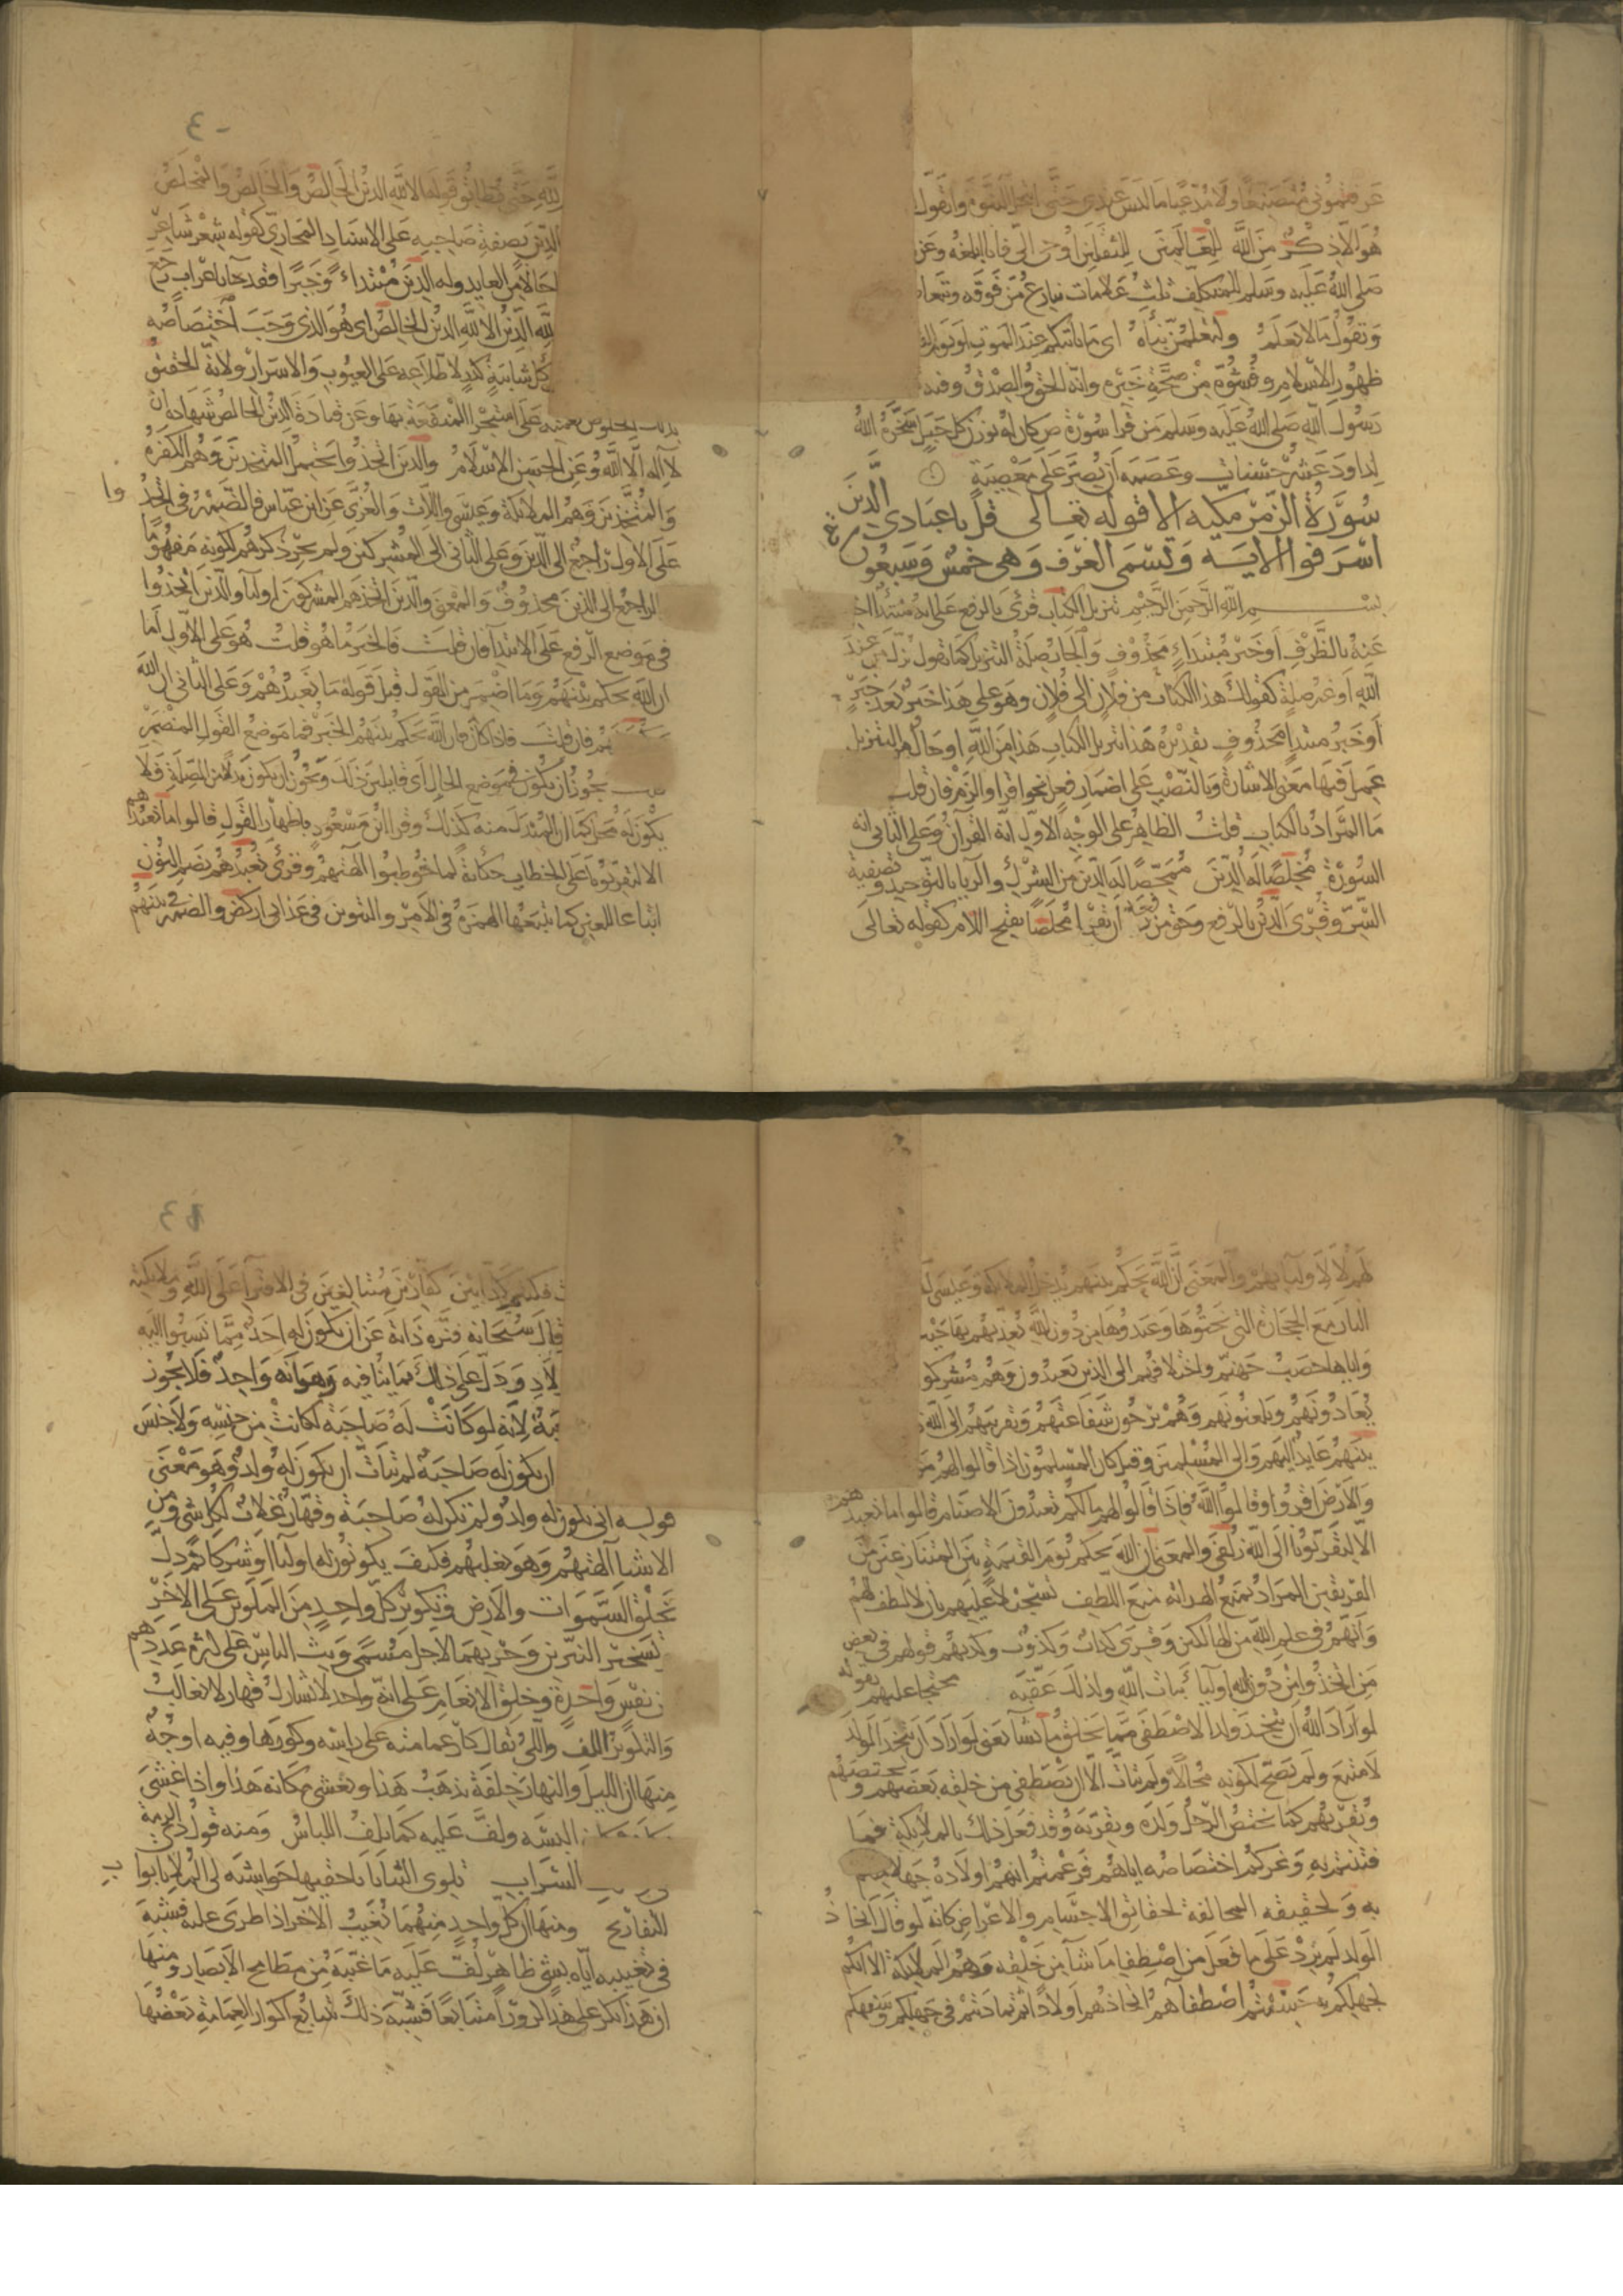 عرفتموني متصنعا ولا مدعيا ما ليس عندي حتى انتحل النبوة واتقول
هو الا ذكر من الله للعالمين للثقلين اوحى الي فانا ابلغه وعن
صلى الله عليه وسلم للمتكلف ثلث علامات ينازع من فوقه ويتعاط
ويقول ما لا يعلم ولتعلمن نباه اي ما ياتيكم عند الموت او يوم
ظهور الاسلام وفشوه من صحة خبره وانه الحق والصدق وفيه
رسول الله صلى الله عليه وسلم من قرا سورة ص كان له بوزن كل جبل سخره الله
لداود عشر حسنات وعصمه ان يصر على معصية
سورة الزمر مكيه الا قوله تعالى قل يا عبادي الذين
اسرفوا الايه وتسمى الغرف وهي خمس وسبعون
بسم الله الرحمن الرحيم تنزيل الكتاب قرئ بالرفع على انه مبتدا
عنه بالظرف او خبر مبتداء محذوف والجار صلة التنزيل كما تقول نزل من عند
الله او غير صلة كقولك هذا الكتاب من فلان الى فلان وهو على هذا خبر بعد خبر
او خبر مبتدا محذوف تقديره هذا تنزيل الكتاب هذا من الله او حال من التنزيل
عمل فيها معنى الاشارة وبالنصب على اضمار فعل نحو اقرا والزم فان قلت
ما المراد بالكتاب قلت الظاهر على الوجه الاول انه القران وعلى الثاني انه
السورة مخلصا له الدين ممحصا له الدين من الشرك والريا بالتوحيد وتصفية
السر وقرئ الدين بالرفع وحق من رفعه ان يقرا مخلصا بفتح اللام كقوله تعالى
لله حتى يطابق قوله الا لله الدين الخالص والخالص والمخلص
الدين بصفة صاحبه على الاسناد المجازي كقولهم شعر شاعر
حالا من العابد وله الدين مبتداء وخبرا فقد جا باعراب رجع
لله الدين الا لله الدين الخالص اي هو الذي وجب اختصاصه
كل شايبة كدر لاطلاعه على الغيوب والاسرار ولانه الحقيق
بذلك لخلوص نعمته على استجرار المنفعة بها وعن قتادة الدين الخالص شهادة ان
لا اله الا الله وعن الحسن الاسلام والذين اتخذوا يحتمل المتخذين وهم الكفرة
والمتخذين وهم الملائكة وعيسى واللات والعزى عن ابن عباس فالضمير في اتخذوا
على الاول راجع الى الذين وعلى الثاني الى المشركين ولم يجر ذكرهم لكونه مفهوما
الراجع الى الذين محذوف والمعنى والذين اتخذهم المشركون اوليا والذين اتخذوا
في موضع الرفع على الابتدا فان قلت فالخبر ما هو قلت هو على الاول اما
ان الله يحكم بينهم وما اضمر من القول قبل قوله ما نعبدهم وعلى الثاني ان الله
بينهم فان قلت فاذا كان ان الله يحكم بينهم الخبر فما موضع القول المضمر
قلت يجوز ان يكون في موضع الحال اي قايلين ذلك ويجوز ان يكون بدلا من الصلة فلا
يكون له محل كما ان المبدل منه كذلك وقرا ابن مسعود باظهار القول قالوا ما نعبدهم
الا لتقربونا على الخطاب حكاية لما خوطبوا الهتهم وقرئ نعبدهم بضم النون
اتباعا للعين كما تتبعها الهمزة في الامر والتنوين في عذاب اركض والضمير في بينهم
لهم لا اوليايهم والمعنى ان الله يحكم بينهم يدخل الملايكة وعيسى
النار مع الحجارة التي نحتوها وعبدوها من دون الله يعذبهم بها حيث
واياها حصب جهنم واختلافهم ان الذين يعبدون وهم مشركو
يعادونهم ويلعنونهم وهم يرجون شفاعتهم وتقربهم الى الله
بينهم عايد اليهم والى المسلمين وقيل كان المسلمون اذا قالوا لهم من
والارض اقروا وقالوا الله فاذا قالوا لهم ما لكم تعبدون الاصنام قالوا ما نعبدهم
الا ليقربونا الى الله زلفى والمعنى ان الله يحكم يوم القيمة بين المتنازعين من
الفريقين المراد بمنع الهداية منع اللطف تسجيلا عليهم بان لا لطف لهم
وانهم في علم الله من الهالكين وقرئ كذاب وكذوب وكذبهم قولهم في بعض
من اتخذوا من دون الله اوليا بنات الله ولذلك عقبه محتجا عليهم بقوله
لو اراد الله ان يتخذ ولدا لاصطفى مما يخلق ما يشا يعني لو اراد ان يتخذ الولد
لامتنع ولم يصح لكونه محالا ولم يتات الا ان يصطفي من خلقه بعضهم ويختصهم
ويقربهم كما يختص الرجل ولده ويقربه وقد فعل ذلك بالملايكة
فتنتم به وغركم اختصاصه اياهم فزعمتم انهم اولاده جهلا منكم
به وبحقيقته المخالفة لحقائق الاجسام والاعراض كانه لو قال اتخاذ
الولد لم يزد على ما فعل من اصطفا ما شا من خلقه وهم الملايكة الا انكم
لجهلكم به حسبتم اصطفاهم اتخاذهم اولادا ثم تماديتم في جهلكم وسفهكم
فكنتم كذابين كفارين متبالغين في الافترا على الله وملايكته
قال سبحانه فنزه ذاته عن ان يكون له احد مما نسبوا اليه
لاد ودل على ذلك بما ينافيه وهو انه واحد فلا يجوز
لانه لو كانت له صاحبة لكانت من جنسه ولا جنس
ان يكون له صاحبة لم يتات ان يكون له ولد وهو معنى
قوله انى يكون له ولد ولم تكن له صاحبة وقهار غلاب لكل شي ومن
الاشيا الهتهم وهو يغلبهم فكيف يكونون له اوليا او شركا ثم دل
بخلق السموات والارض وتكوير كل واحد من الملوين على الاخر
تسخير النيرين وجريهما لاجل مسمى وبث الناس على كثرة عددهم
من نفس واحدة وخلق الانعام على انه واحد لا يشارك قهار لا يغالب
والتكوير اللف واللي يقال كار عمامته على راسه وكورها وفيه اوجه
منها ان الليل والنهار خلفة يذهب هذا ويغشى مكانه هذا واذا غشى
البسه ولف عليه كما يلف اللباس ومنه قول ذي الرمة
السراب تلوى الثنايا باحقيها حواشيه لي الملا بابواب
التفاريج ومنها ان كل واحد منهما يغيب الاخر اذا طرى عليه فشبه
في تغييبه اياه بشي ظاهر لف عليه ما غيبه من مطامح الابصار ومنها
ان هذا يكر على هذا كرورا متتابعا فشبه ذلك بتتابع اكوار العمامة بعضها